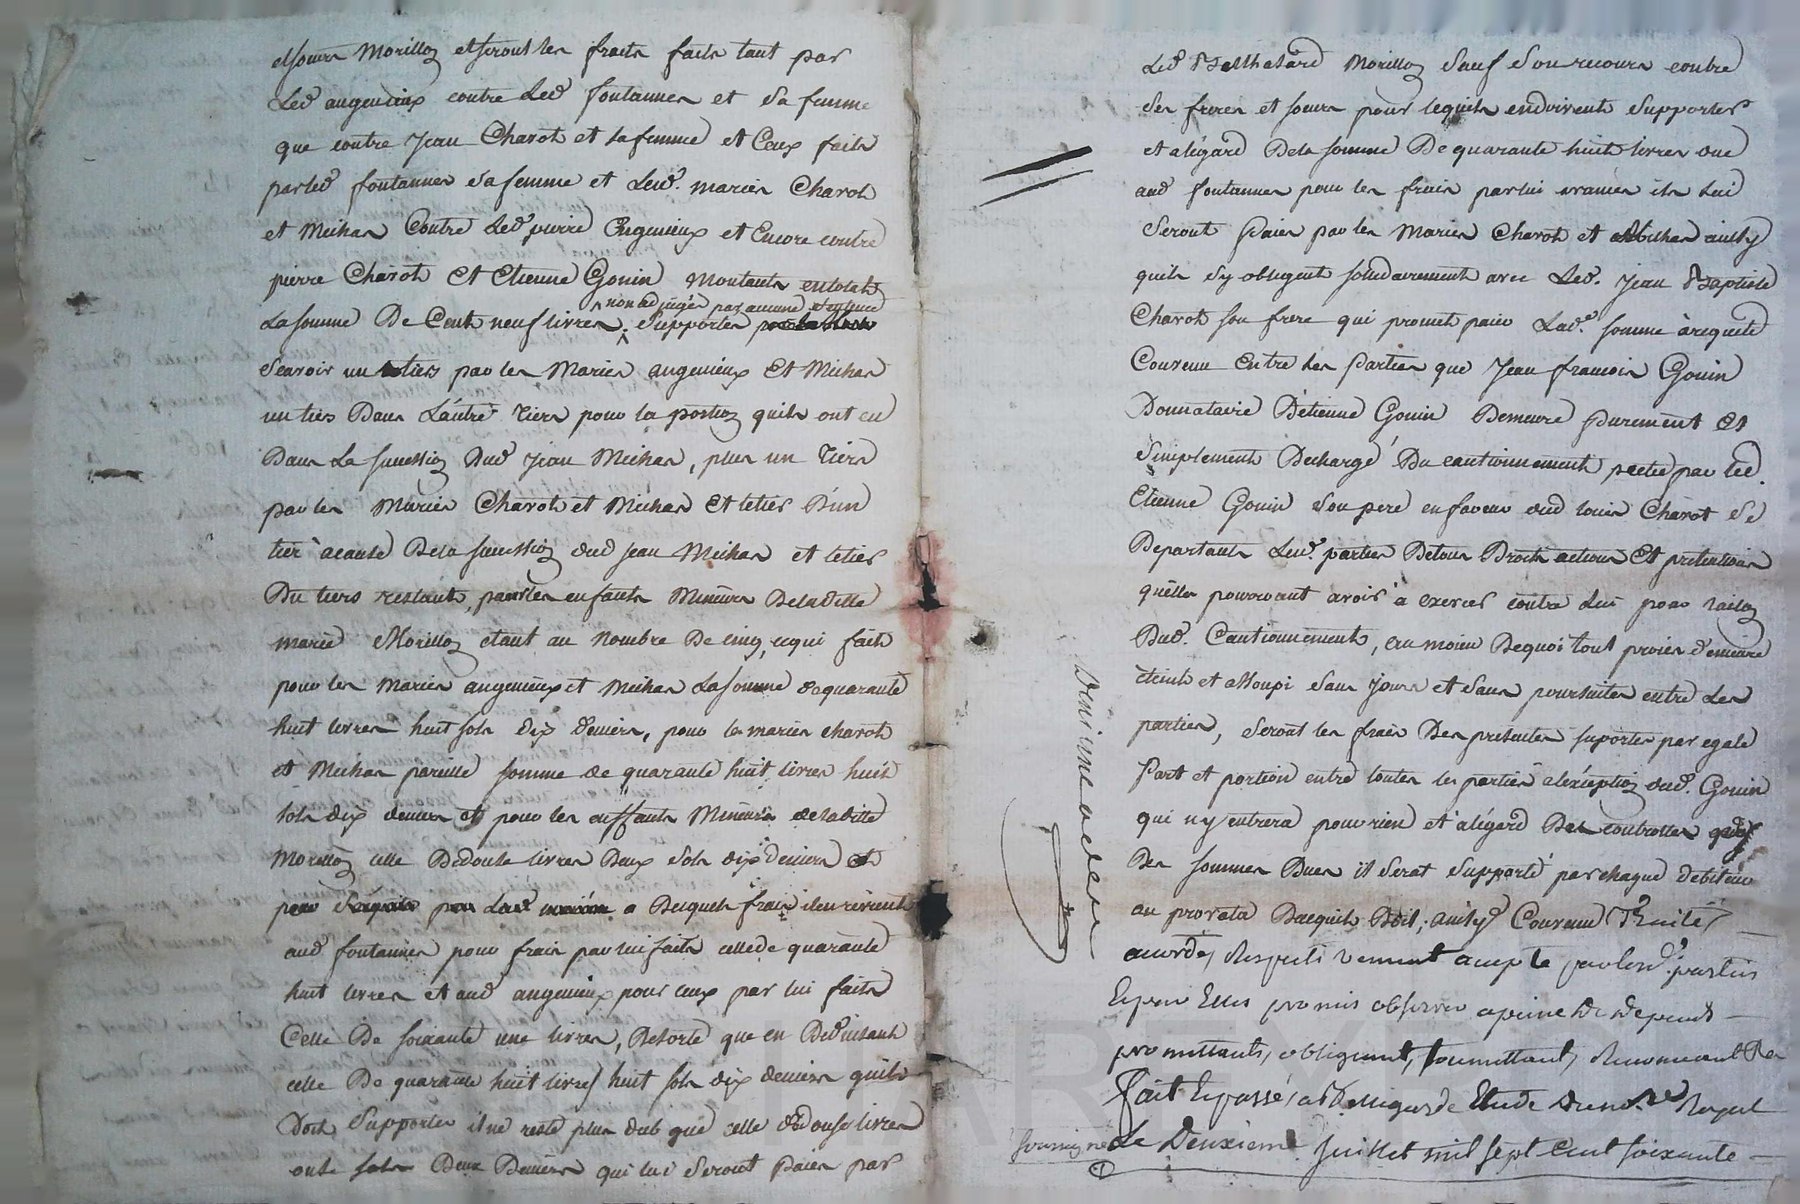 et soeurs Morillon et seront les fraits faits tant par
Led angenieux contre Led fontannes et Sa femme
que contre Jean Charoh et Sa femme et Ceux faits
par led fontannes Sa femme et Lesd. mariés Charoh
et Michas Contre Led pierre Engenieux et Encore contre
pierre Charoh Et Etienne Gonin Montants entotale
non adjugés par aucune Sentence
La somme De Cent neuf livres. Supportés
Scavoir un tiers par les Mariés angenieux Et Michas
un tiers Dans L'autre Tiers pour la portion quils ont eu
Dans La succession Dud Jean Michas, plus un Tiers
par les Mariés Charoh et Michas Et le tiers D'un
tier acause De la succession dud jean Michas et le tiers
Du tiers restants, par les enfants Mineurs De la ditte
marie Morillon etant au Nombre De cinq, cequi fait
pour les Mariés angenieux et Michas La somme de quarante
huit livres huit sols dix deniers, pour les mariés charoh
et Michas pareille somme de quarante huit livres huit
sols dix deniers et pour les enffants Mineurs de la ditte
Morillon celle De douse livres Deux Sols dix deniers
a Desquels frais il en revient
aud fontannes pour frais par lui faits celle de quarante
huit livres et aud angenieux pour ceux par lui faits
Celle De soixante une livres, De sorte que en Deduisant
celle De quarante huit livres huit sols dix deniers quil
Doit Supporter il ne reste plus dub que celle de douse livres
onse sols Deux Deniers qui lui Seront païés par
Led Balthasard Morillon Sauf Son recours contre
Ses freres et soeurs pour lequils endoivent Supporter
et a légard De la somme De quarante huit livres due
aud fontannes pour les frais par lui ils Lui
Seront païés par les Mariés Charoh et Michas ainsy
quils Sy obligent solidairement avec Led. Jean Baptiste
Charoh son frere qui promet païer Lad. somme
Convenu Entre les parties que Jean francois Gonin
Donnataire D'etienne Gonin Demeure purement Et
Simplement Dechargé Du cautionnement par led.
Etienne Gonin Son pere en faveur dud louis Charot Se
Departants Lesd. parties De tous Droits actions Et pretentions
quelles pourroient avoir a exercer contre Lui pour raison
Dud. Cautionnement, au moien Dequoi tout procès demeure
éteint et assoupi Sans Jours et Sans poursuites entre Les
parties, Seront les frais Des presentes suportés par egale
part et portion entre toutes les parties a l'exception dud. Gonin
qui ny entrera pour rien et a légard Des controlles
Des sommes Dues il Serat Supporté par chaque debiteur
au prorata Dequils Doit; ainsy Convenu Traité
accordé, Respectivement accepté par lesd. parties
Et par Elles promis observer a peine de depends
promettants, obligeant, soumettant, Renonceant &a
fait Et passé, a Etude du no.re Royal
soussigné Le Deuxieme Juillet mil sept Cent soixante